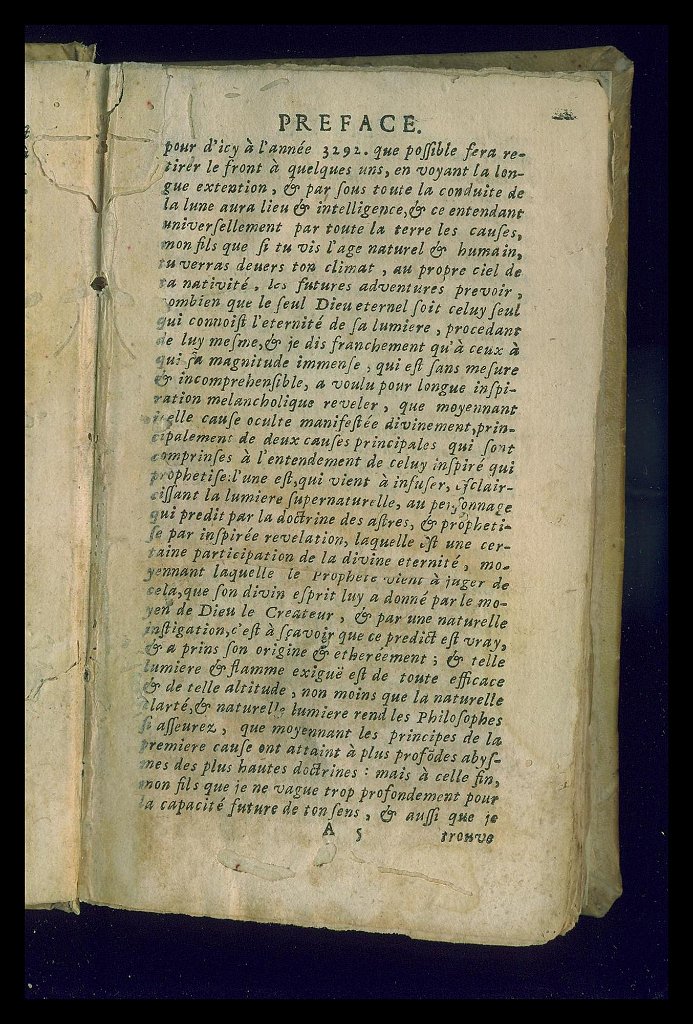 PREFACE.
pour d'icy à l'année 3292. que poſſible fera re-
tirer le front à quelques uns, en voyant la lon-
gue extention, & par ſous toute la conduite de
la lune aura lieu & intelligence, & ce entendant
univerſellement par toute la terre les cauſes,
mon fils que ſi tu vis l'age naturel & humain,
tu verras devers ton climat, au propre ciel de
ta nativité, les futures adventures prevoir,
combien que le ſeul Dieu eternel ſoit celuy ſeul
qui connoiſt l'eternité de ſa lumiere, procedant
de luy meſme, & je dis franchement qu'à ceux à
qui ſa magnitude immenſe, qui eſt ſans meſure
& incomprehenſible, a voulu pour longue inſpi-
ration melancholique reveler, que moyennant
icelle cauſe oculte manifeſtée divinement, prin-
cipalement de deux cauſes principales qui ſont
comprinſes à l'entendement de celuy inſpiré qui
prophetiſe: l'une eſt, qui vient à infuſer, eſclair-
ciſſant la lumiere ſupernaturelle, au perſonnage
qui predit par la doctrine des aſtres, & propheti-
ſe par inſpirée revelation, laquelle eſt une cer-
taine participation de la divine eternité, mo-
yennant laquelle le Prophete vient à juger de
cela, que ſon divin eſprit luy a donné par le mo-
yen de Dieu le Createur, & par une naturelle
inſtigation, c'eſt à ſçavoir que ce predict eſt vray,
& a prins ſon origine & ethereément; & telle
lumiere & flamme exiguë eſt de toute efficace
& de telle altitude, non moins que la naturelle
clarté, & naturelle lumiere rend les Philoſophes
ſi aſſeurez, que moyennant les principes de la
premiere cauſe ont attaint à plus profõdes abyſ-
mes des plus hautes doctrines: mais à celle fin,
mon fils que je ne vague trop profondement pour
la capacité future de ton ſens, & auſſi que je
A 5 trouve